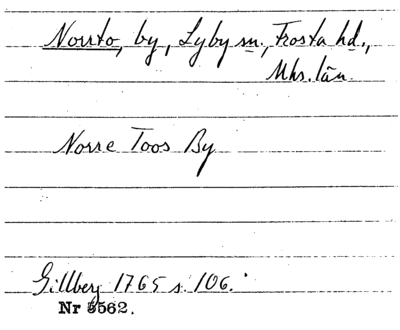 Norrto, by, Lyby sn., Frosta hd.,
Mhs. län.
Norre Toos By
Gillberg 1765 s. 106.
Nr 5562.